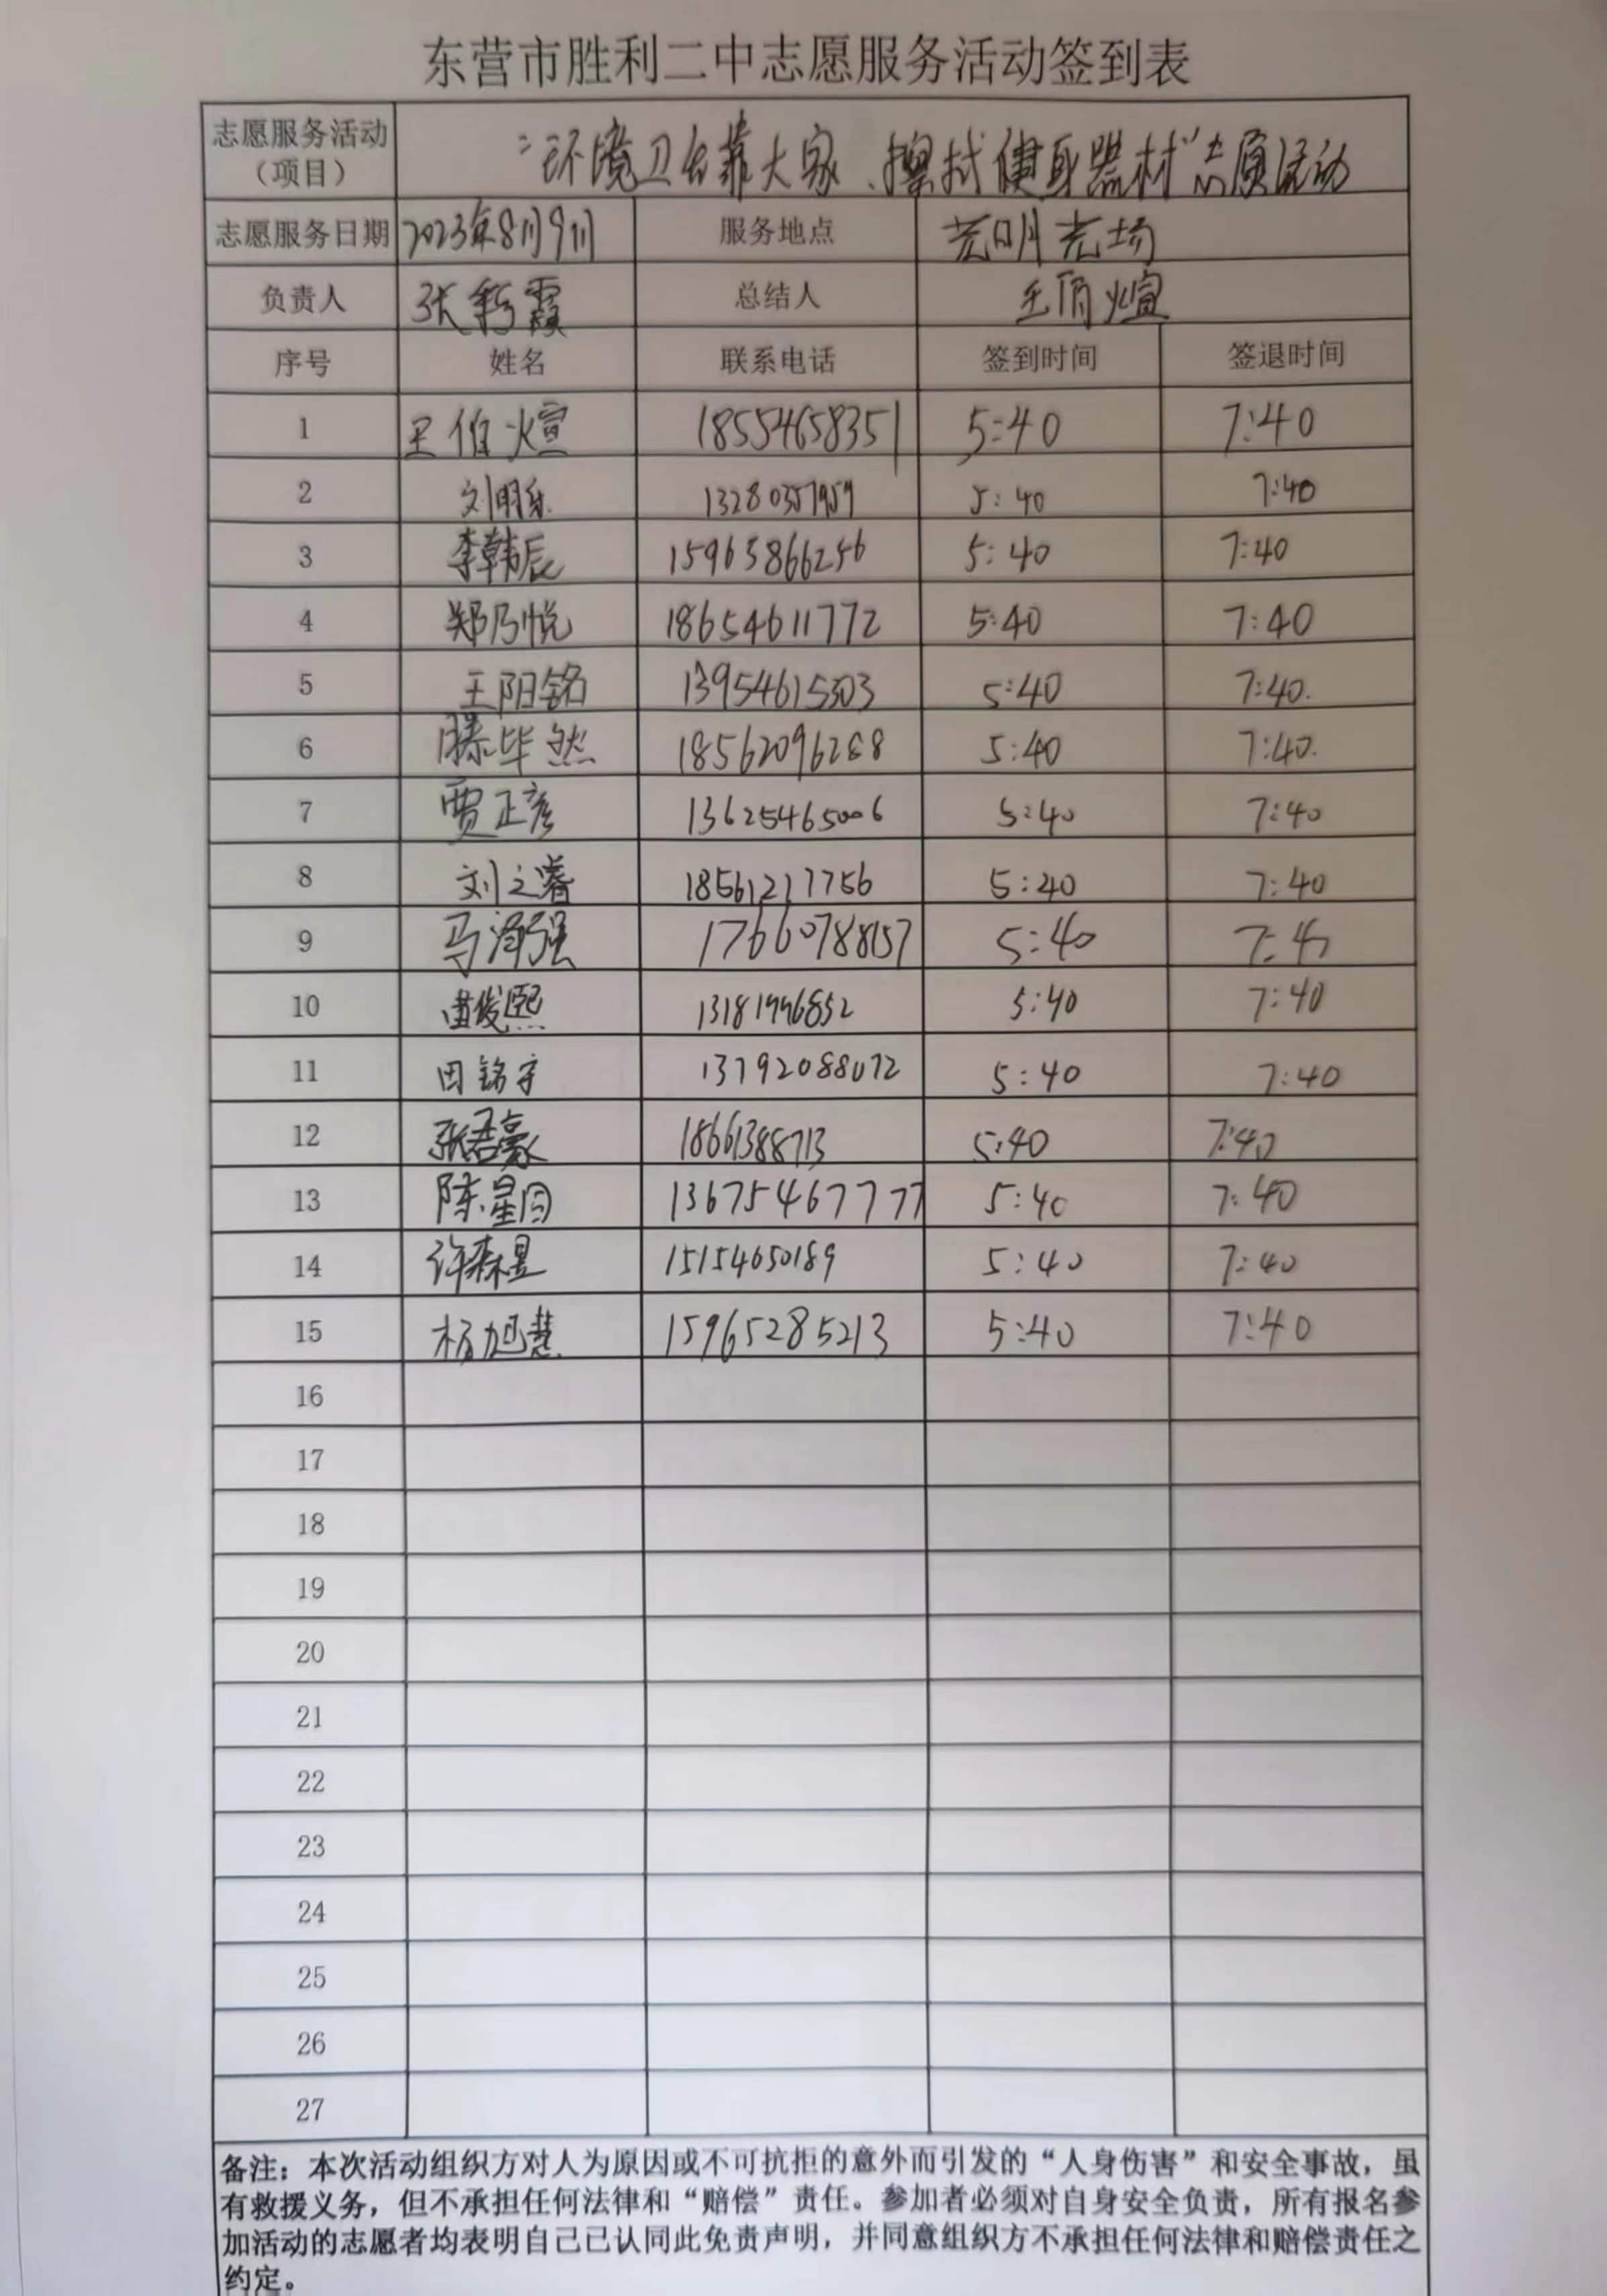 东营市胜利二中志愿服务活动签到表
志愿服务活动
（项目）
“环境卫生靠大家、擦拭健身器材”志愿活动
志愿服务日期 2023年8月9日 服务地点 光明广场
负责人 张 霞 总结人 王 煊
序号 姓名 联系电话 签到时间 签退时间
1 王 煊 18554658351 5:40 7:40
2 刘明乐 13280357959 5:40 7:40
3 李韩辰 15963866256 5:40 7:40
4 郑乃悦 18654611772 5:40 7:40
5 王阳铭 13954615303 5:40 7:40.
6 滕毕然 18562096288 5:40 7:40.
7 贾正彦 13625465006 5:40 7:40
8 刘之睿 18561217756 5:40 7:40
9 马泽强 17660788157 5:40
10 苗俊熙 13181996852 5:40 7:40
11 田铭宇 13792088072 5:40 7:40
12 张君豪 18661388713 5:40 7:40
13 陈星 13675467777 5:40 7:40
14 许森昱 15154650189 5:40 7:40
15 杨旭慧 15965285213 5:40 7:40
16
17
18
19
20
21
22
23
24
25
26
27
备注：本次活动组织方对人为原因或不可抗拒的意外而引发的“人身伤害”和安全事故，虽
有救援义务，但不承担任何法律和“赔偿”责任。参加者必须对自身安全负责，所有报名参
加活动的志愿者均表明自己已认同此免责声明，并同意组织方不承担任何法律和赔偿责任之
约定。